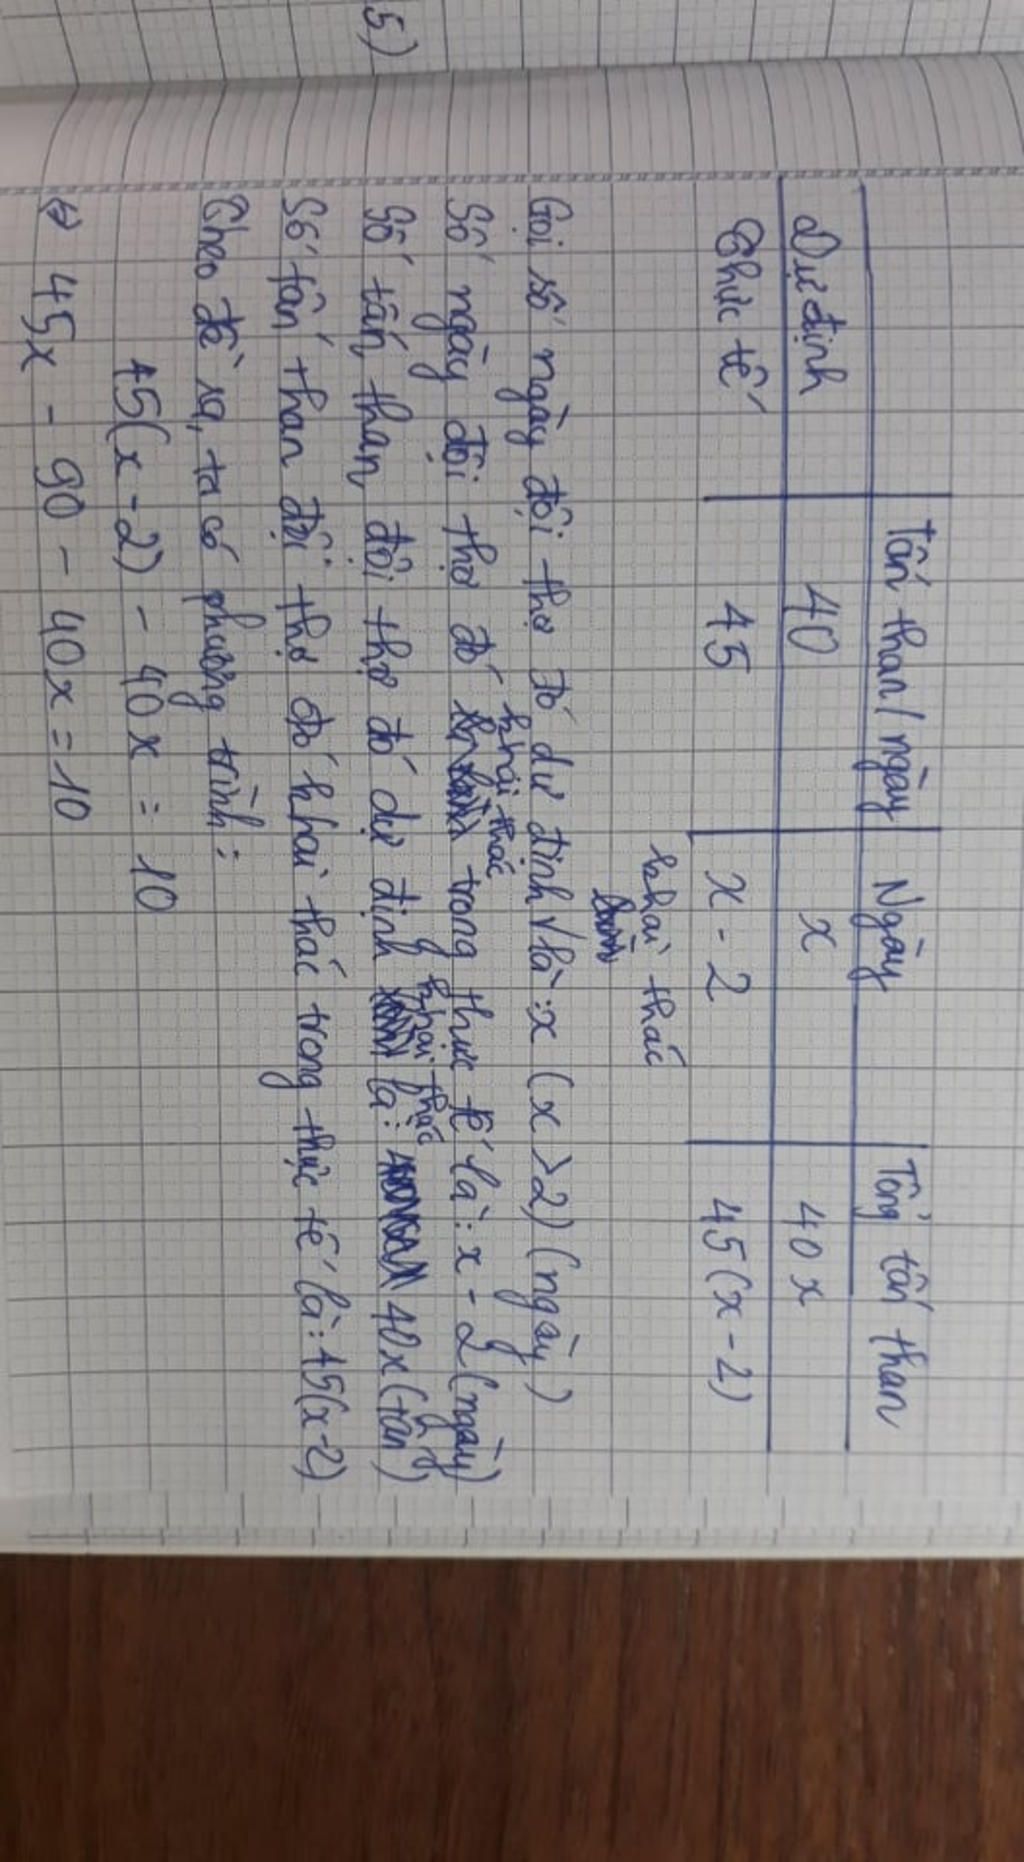 5)
Tấn than/ngày Ngày Tổng tấn than
Dự định 40 x 40x
Thực tế 45 x - 2 45(x - 2)
khai thác
Gọi số ngày đội thợ đó dự định là: x (x > 2) (ngày)
khai thác
Số ngày đội thợ đó trong thực tế là: x - 2 (ngày)
khai thác
Số tấn than đội thợ đó dự định là: 40x (tấn)
Số tấn than đội thợ đó khai thác trong thực tế là: 45(x-2)
Theo đề ra, ta có phương trình:
45(x - 2) - 40x = 10
⇔ 45x - 90 - 40x = 10